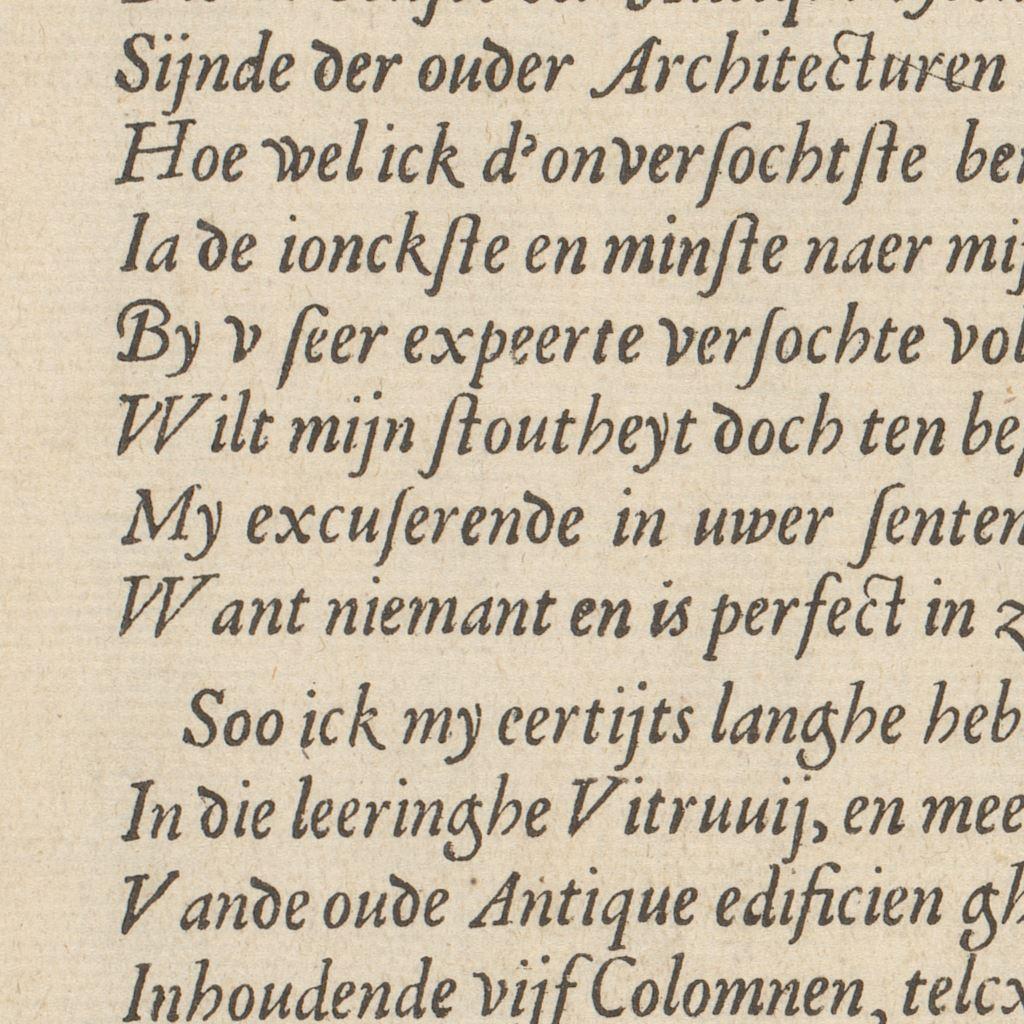 Sijnde der ouder Architecturen
Hoe wel ick d'onverſochtſte
Ia de ionckſte en minſte naer
By v ſeer expeerte verſochte
Wilt mijn ſtoutheyt doch ten
My excuſerende in uwer
Want niemant en is perfect in
Soo ick my eertijts langhe heb
In die leeringhe Vitruuij, en mee
Vande oude Antique edificien
Inhoudende vijf Colomnen, telcx